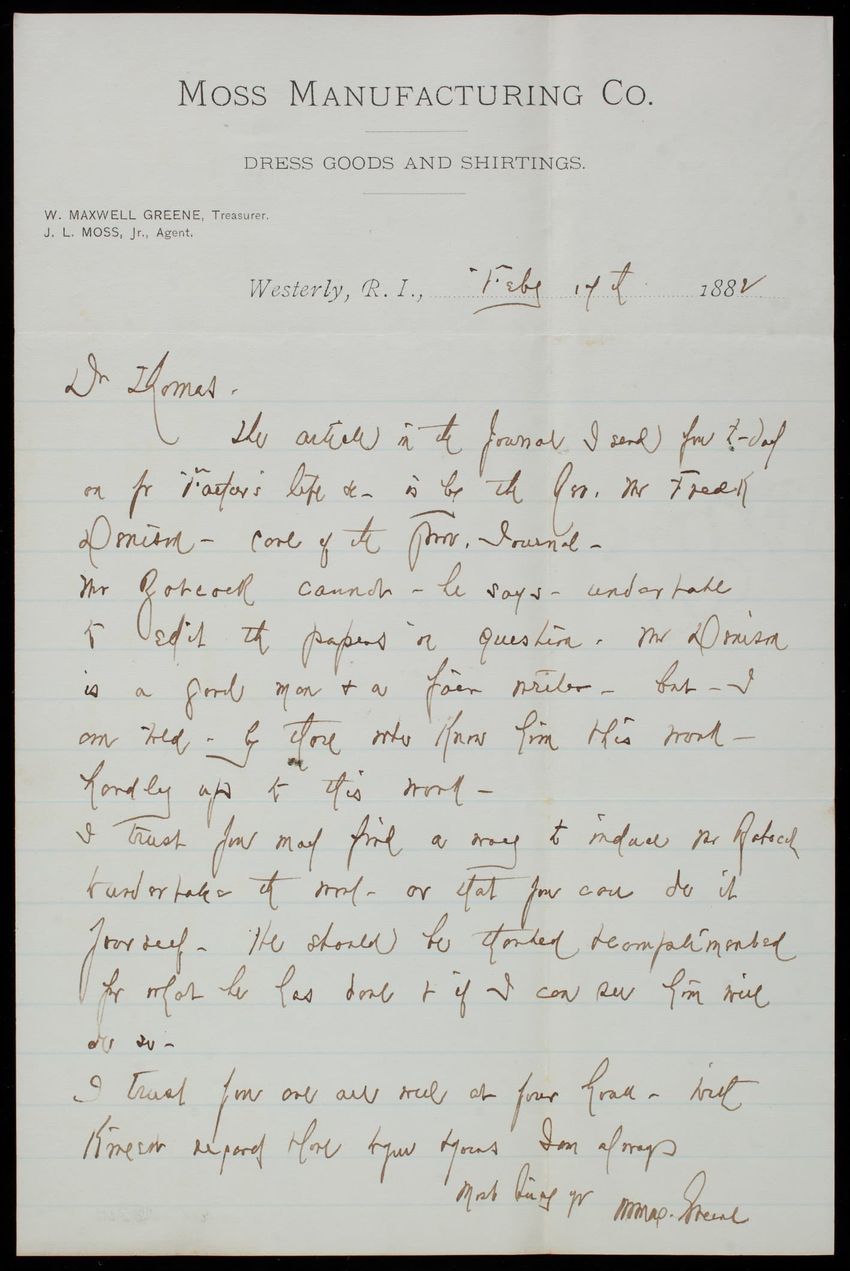 MOSS MANUFACTURING CO.
DRESS GOODS AND SHIRTINGS.
W. MAXWELL GREENE, Treasurer.
J. L. MOSS, Jr., Agent.
Westerly, R. I., Feby 17th 1882
Dr Thomas.
The article in the Journal I send you to-day
on yr Father's life &c - is by the Rev. Mr Fredk
Denison - care of the Prov. Journal -
Mr Babcock cannot - he says - undertake
to edit the papers in question. Mr Denison
is a good man & a fair writer - but - I
am told - by those who know him this work -
hardly up to this work -
I trust you may find a way to induce Mr Babcock
to undertake the work - or that you can do it
yourself - He should be thanked & complimented
for what he has done & if I can see him will
do so -
I trust you are all well at your house - With
Kindest regards to you & yours I am always
Most truly yr WmMax. Greene